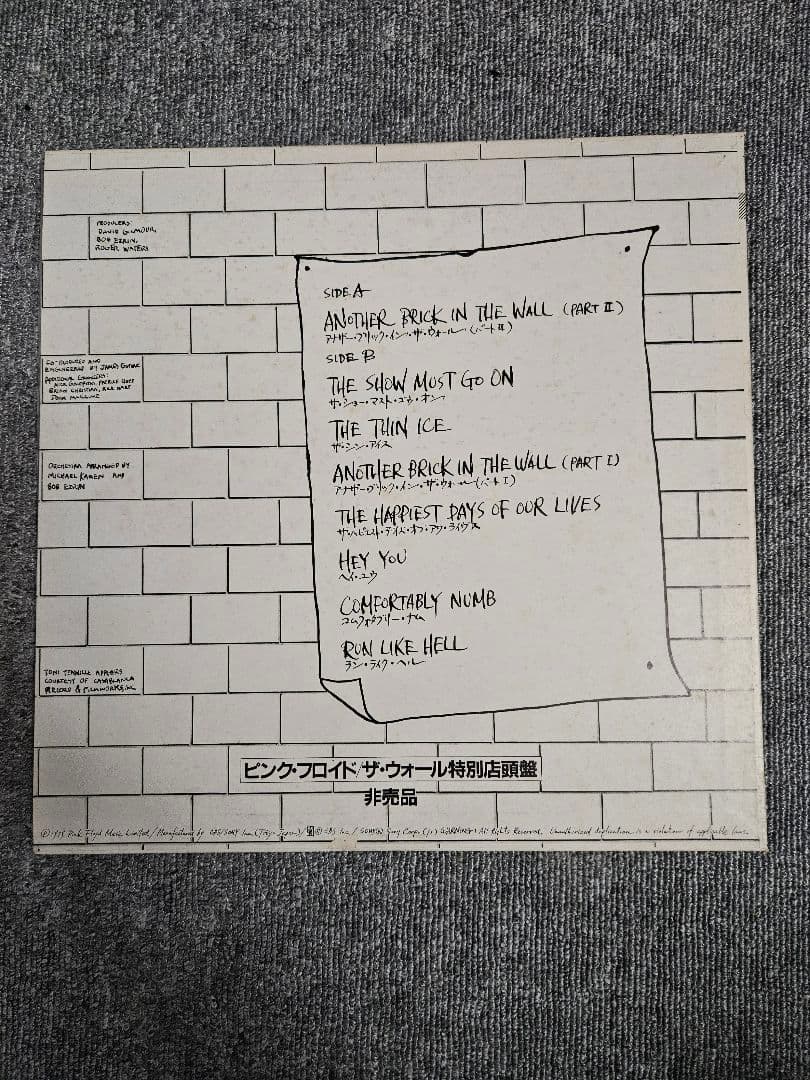 PRODUCERS:
DAVID GILMOUR,
BOB EZRIN,
ROGER WATERS
CO-PRODUCED AND
ENGINEERED BY JAMES GUTHRIE
ADDITIONAL ENGINEERS:
NICK GRIFFITHS, PATRICE QUEF
BRIAN CHRISTIAN, RICK HART
JOHN
ORCHESTRA ARRANGED BY
MICHAEL KAMEN AND
BOB EZRIN
TONI TENNILLE APPEARS
COURTESY OF CASABLANCA
RECORD & FILMWORKS INC
SIDE A
ANOTHER BRICK IN THE WALL (PART II)
アナザー・ブリック・イン・ザ・ウォール(パートII)
SIDE B
THE SHOW MUST GO ON
ザ・ショー・マスト・ゴウ・オン
THE THIN ICE
ザ・シン・アイス
ANOTHER BRICK IN THE WALL (PART I)
アナザー・ブリック・イン・ザ・ウォール(パートI)
THE HAPPIEST DAYS OF OUR LIVES
ザ・ハピエスト・デイズ・オブ・アワ・ライヴス
HEY YOU
ヘイ・ユウ
COMFORTABLY NUMB
コムフォタブリー・ナム
RUN LIKE HELL
ラン・ライク・ヘル
ピンク・フロイド/ザ・ウォール特別店頭盤
非売品
Pink Floyd Music Limited / Manufactured by CBS/SONY Inc. (Tokyo Japan) / CBS Inc. / Sony Corp. WARNING: All Rights Reserved. Unauthorized duplication is a violation of applicable laws.